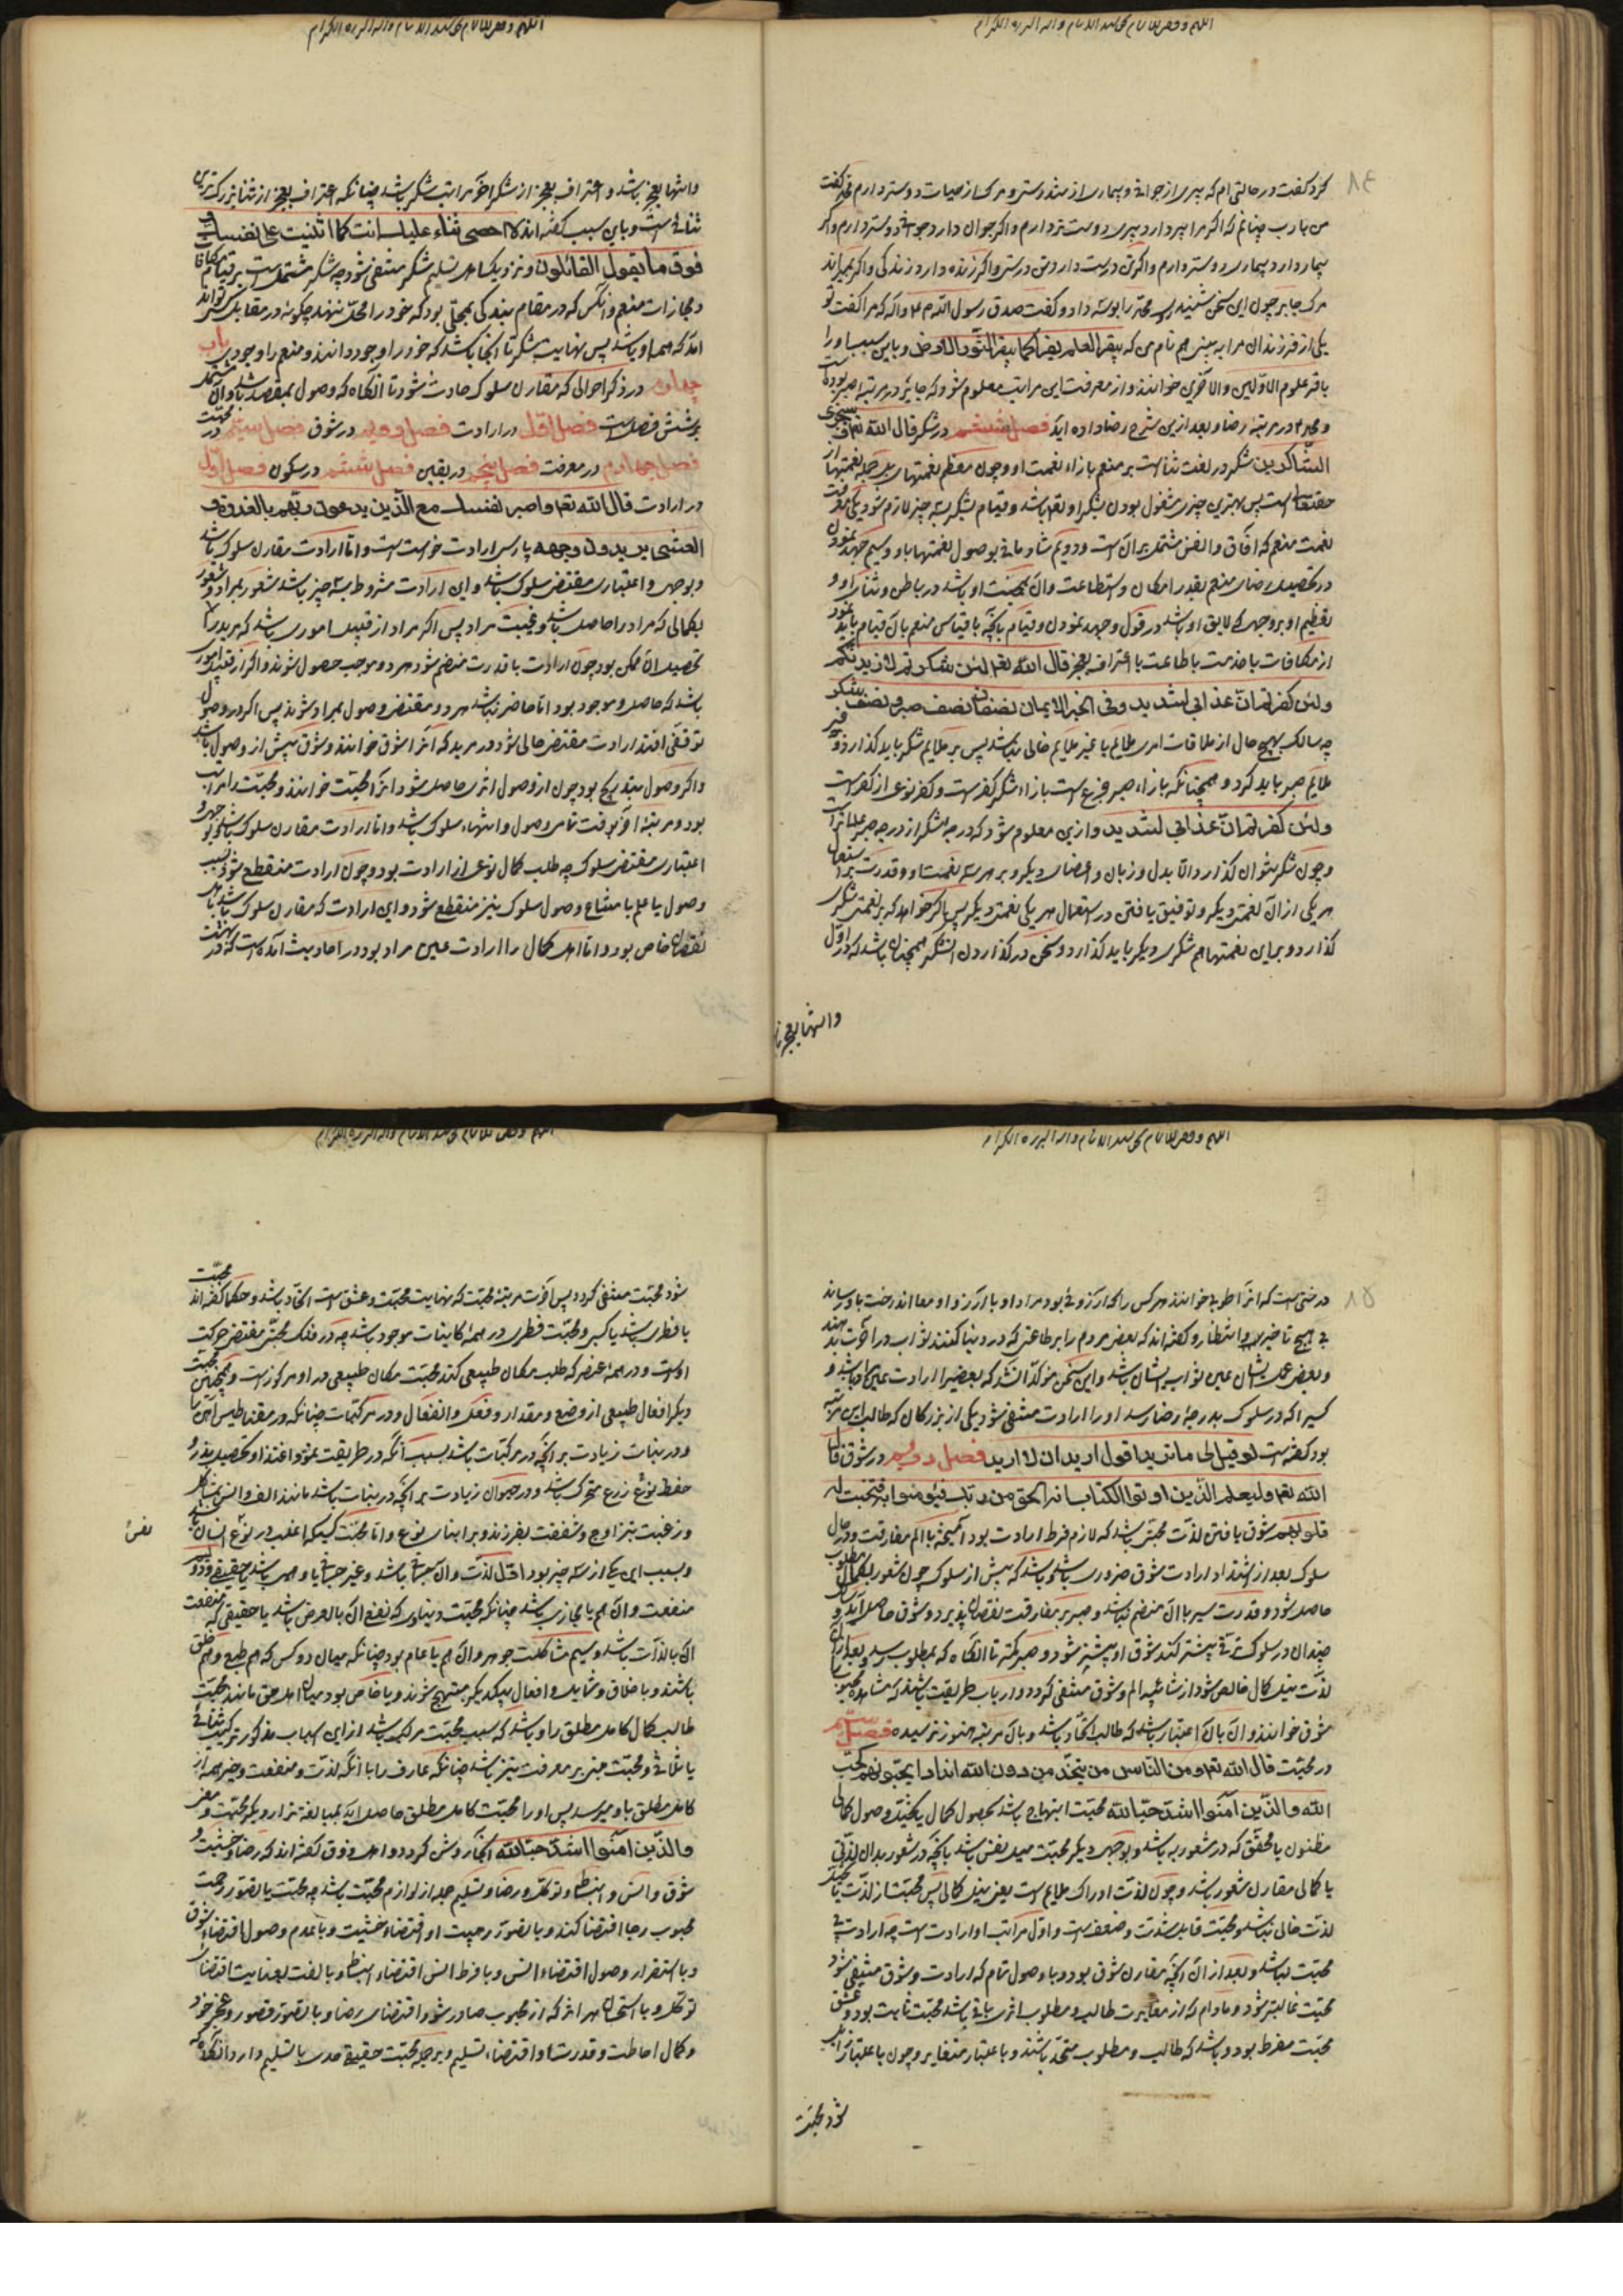 کرد گفت در حالتی‌ام که پیری از جوانی و بیماری از تندرستی و مرک از حیات دوستر دارم محمد گفت
من بارب چنانم که اگر مرا پیر دارد پیری دوستتر دارم و اگر جوان دارد جوانی دوستر دارم و اگر
بیمار دارد بیماری دوستر دارم و اگر تن درست دارد تن درستی و اگر زنده دارد زندگی و اگر بمیراند
مرک جابر چون این سخن شنید بر روی محمد را بوسه داد و گفت صدق رسول الله ص م که مرا گفت تو
یکی از فرزندان مرا ببینی هم نام من که یبقر العلم بقرا کما یبقر الثور الارض و باین سبب او را
باقر علوم الاولین والآخرین خوانند و از معرفت این مراتب معلوم شود که جابر در مرتبه اهل صبر بوده است
و محمد در مرتبه رضا و بعد ازین شرح رضا داده آید فصل ششم در شکر قال الله تعالی سنجزی
الشاکرین شکر در لغت ثناست بر منعم بازاء نعمت او و چون معظم نعمتهای بلکه جمله نعمتها از
حقتعالی است پس بهترین چیزی مشغول بودن بشکر او تعالی باشد و قیام بشکر بسه چیز لازم شود یکی معرفت
نعمت منعم که آفاق و انفس مشتمل بر آن است و دویم شادمانی بوصول نعمتها باو و سیم جهد نمودن
در تحصیل رضای منعم بقدر امکان و استطاعت و آن بمحبت او باشد در باطن و ثنای او و
تعظیم او بر وجهی که لایق او باشد در قول و جهد نمودن و قیام بآنچه با قیاس منعم بآن قیام باید نمود
از مکافات یا خدمت یا طاعت یا اعتراف بعجز قال الله تعالی لئن شکرتم لازیدنکم
ولئن کفرتم ان عذابی لشدید وفی الخبر الایمان نصفان نصف صبر و نصف شکر
چه سالک بهیچ حال از ملاقات امری ملایم یا غیر ملایم خالی نباشد پس بر ملایم شکر باید گذارد و بر غیر
ملایم صبر باید کرد و همچنانکه بازاء صبر جزع است بازاء شکر کفر است و کفر نوعی از کفر است
ولئن کفرتم ان عذابی لشدید و ازین معلوم شود که درجه شکر از درجه صبر عالیتر است
و چون شکر نتوان گذارد الا بدل و زبان و اعضای دیگر و بر هر سه نعمت او و قدرت بر استعمال
هر یکی از آن نعمتی دیگر و توفیق یافتن در استعمال هر یکی نعمتی دیگر پس اگر خواهد که بر نعمتی شکر
گذارد و برای نعمتها هم شکری دیگر باید گذارد و سخن در گذاردن آن شکر همچنان باشد که در اول
وانتها بعجز با
وانتها بعجز باشد و اعتراف بعجز از شکر آخر مراتب شکر باشد چنانکه اعتراف بعجز از ثنا بزرگترین
ثنائی است و باین سبب گفته‌اند لا احصی ثناء علیک انت کما اثنیت علی نفسک و
فوق ما یقول القائلون و نزدیک اهل تسلیم شکر منتفی شود چه شکر مشتمل است بر قیام بمکافات
و مجازات منعم و آنکس که در مقام بندگی بمحلی بود که خود را محل ننهد چگونه در مقابل کسی تواند
آمد که همه او باشد پس نهایت شکر تا آنجا باشد که خود را وجود دانند و منعم را وجود دیگر باب
چهارم در ذکر احوالی که مقارن سلوک حادث شود تا آنگاه که وصول بمقصد باشد و آن مشتمل
بر شش فصل است فصل اول در ارادت فصل دویم در شوق فصل سیم در محبت
فصل چهارم در معرفت فصل پنجم در یقین فصل ششم در سکون فصل اول
در ارادت قال الله تعالی واصبر نفسک مع الذین یدعون ربهم بالغدوة و
العشی یریدون وجهه پارسی ارادت خواستن است و اما ارادت مقارن سلوک باشد
و بوجهی و اعتباری مقتضی سلوک باشد و این ارادت مشروط بسه چیز باشد شعور بمراد و شعور
بکمالی که مراد را حاصل باشد و غیبت مراد پس اگر مراد از قبیل اموری باشد که مرید را
تحصیل آن ممکن بود چون ارادت با قدرت منضم شود هر دو موجب حصول شوند و اگر از قبیل اموری
باشد که حاصل و موجود بود اما حاضر نباشد هر دو مقتضی وصول بمراد شوند پس اگر در وصول
توقفی افتد ارادت مقتضی حالی شود در مرید که آنرا شوق خوانند و شوق پیش از وصول باشد
و اگر وصول بتدریج بود چون از وصول اثری حاصل شود آنرا محبت خوانند و محبت را مراتب
بود و مرتبه آخر وقت تمامی وصول و انتهاء سلوک باشد و اما ارادت مقارن سلوک باشد و بوجهی و
اعتباری مقتضی سلوک چه طلب کمال نوعی از ارادت بود و چون ارادت منقطع شود بسبب
وصول یا علم بامتناع وصول سلوک نیز منقطع شود و این ارادت که مقارن سلوک باشد باهل
نقصان خاص بود و اما اهل کمال را ارادت عین مراد بود در احادیث آمده است که در بهشت
درختی است که آنرا طوبی خوانند هر کس را که آرزوئی بود مراد او با آرزو او معا آندرخت باو رساند
بی هیچ تاخیر و انتظار و گفته‌اند که بعضی مردم را بر طاعتی که در دنیا کنند ثواب در آخرت بدهند
و بعضی عمل ایشان عین ثواب ایشان باشد و این سخن مؤکد آنست که بعضی را ارادت عین مراد باشد و
کسیرا که در سلوک بدرجه رضا رسد او را ارادت منتفی شود یکی از بزرگان که طالب این مرتبه
بود گفته است لو قیل لی ما ترید اقول ارید ان لا ارید فصل دویم در شوق قال
الله تعالی ولیعلم الذین اوتوا الکتاب انه الحق من ربک فیؤمنوا به فتخبت له
قلوبهم شوق یافتن لذت محبتی باشد که لازم فرط ارادت بود آمیخته با الم مفارقت و در حال
سلوک بعد از اشتداد ارادت شوق ضروری باشد و باشد که پیش از سلوک چون شعور بکمال مطلوب
حاصل شود و قدرت سیر با آن منضم نباشد و صبر بر مفارقت نقصان پذیرد و شوق حاصل آید و
چندان در سلوک ترقی بیشتر کند شوق او بیشتر شود و صبر کمتر تا آنگاه که بمطلوب رسد
لذت نیل کمال خالص شود از شائبه الم و شوق منتفی گردد و ارباب طریقت باشند که مشاهده محبوب را
شوق خوانند و آن بآن اعتبار باشد که طالب اتحاد باشد و بآن مرتبه هنوز نرسیده فصل سیم
در محبت قال الله تعالی ومن الناس من یتخذ من دون الله اندادا یحبونهم کحب
الله والذین آمنوا اشد حبا لله محبت ابتهاج باشد بحصول کمال یا تخیل وصول کمالی
مظنون یا محقق که در شعور به باشد و بوجهی دیگر محبت میل نفس باشد بآنچه در شعور بدان لذتی
یا کمالی مقارن شعور باشد و چون لذت ادراک ملایم است یعنی نیل کمالی پس محبت از لذت یا تخیل
لذت خالی نباشد و محبت قابل شدت و ضعف است و اول مراتب او ارادت است چه ارادت بی
محبت نباشد و بعد از آن آنچه مقارن شوق بود و با وصول تمام که ارادت و شوق منتفی شود
محبت غالبتر شود و مادام که از مغایرت طالب و مطلوب اثری باقی باشد محبت ثابت بود و عشق
محبت مفرط بود و باشد که طالب و مطلوب متحد باشند و باعتبار متغایر و چون باعتبار زایل
شود محبت
شود محبت منتفی گردد پس آخرت مرتبه محبت که نهایت محبت و عشق است اتحاد باشد و حکما گفته‌اند محبت
یا فطری باشد یا کسبی و محبت فطری در همه کاینات موجود باشد چه در فلک محبتی مقتضی حرکت
اوست و در همه عنصر که طلب مکان طبیعی کند محبت مکان طبیعی در او مرکوز است و همچنین محبت
دیگر افعال طبیعی از وضع و مقدار و فعل و انفعال و در مرکبات چنانکه در مغناطیس آهن ربا
و در نبات زیادت بر آنچه در مرکبات باشد بسبب آنکه در طریقت نمو و اغتذا و تحصیل بذر و
حفظ نوع زرع متحرک باشد و در حیوان زیادت بر آنچه در نبات باشد مانند الف و انس بمشاکل
و رغبت بتزاوج و شفقت بفرزند و بر ابنای نوع و اما محبت کسبی که اغلب در نوع انسان باشد
نفس
و بسبب آن یکی از سه چیز بود اول لذت و آن جسمانی باشد و غیر جسمانی یا وهمی باشد یا حقیقی و دوم
منفعت و آن هم یا مجازی باشد چنانکه محبت دنیاوی که نفع آن بالعرض باشد یا حقیقی که منفعت
آن بالذات باشد و سیم مشاکلت جوهر و آن هم یا عام بود چنانکه میان دو کس که هم طبع و هم خلق
باشند و باخلاق و شمایل و افعال یکدیگر مبتهج شوند و یا خاص بود میان اهل حق مانند محبت
طالب کمال کامل مطلق را و باشد که سبب محبت مرکب باشد از این اسباب مذکور ترکیب ثنائی
یا ثلاثی و محبت مبنی بر معرفت نیز باشد چنانکه عارف را با آنکه لذت و منفعت و خیر همه از
کامل مطلق باو میرسد پس او را محبت کامل مطلق حاصل آید بمبالغه‌تر از دیگر محبتها و معنی
والذین آمنوا اشد حبا لله آنجا روشن گردد و اهل ذوق گفته‌اند که رضا و خشیت و
شوق و انس و انبساط و توکل و رضا و تسلیم جمله از لوازم محبت باشد چه محبت با تصور رحمت
محبوب رجا اقتضا کند و با تصور هیبت او اقتضاء خشیت و با عدم وصول اقتضاء شوق
و با استقرار وصول اقتضاء انس و با فرط انس اقتضاء انبساط و با ثقت بعنایت اقتضای
توکل و با استحسان هر اثر که از محبوب صادر شود اقتضای رضا و با تصور قصور و عجز خود
و کمال احاطت و قدرت او اقتضاء تسلیم و بر جمله محبت حقیقی